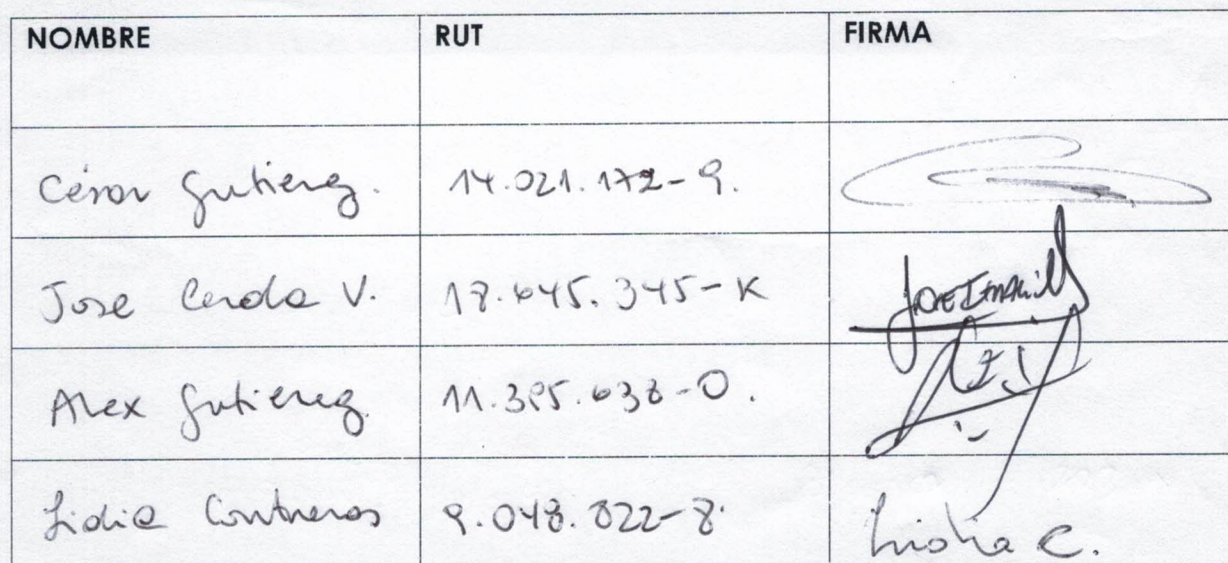 NOMBRE RUT FIRMA
César Gutiérrez. 14.021.172-9.
Jose Cerda V. 18.645.345-K
Alex Gutierrez. 11.395.038-0.
Lidia Contreras 9.048.822-8. Lidia C.